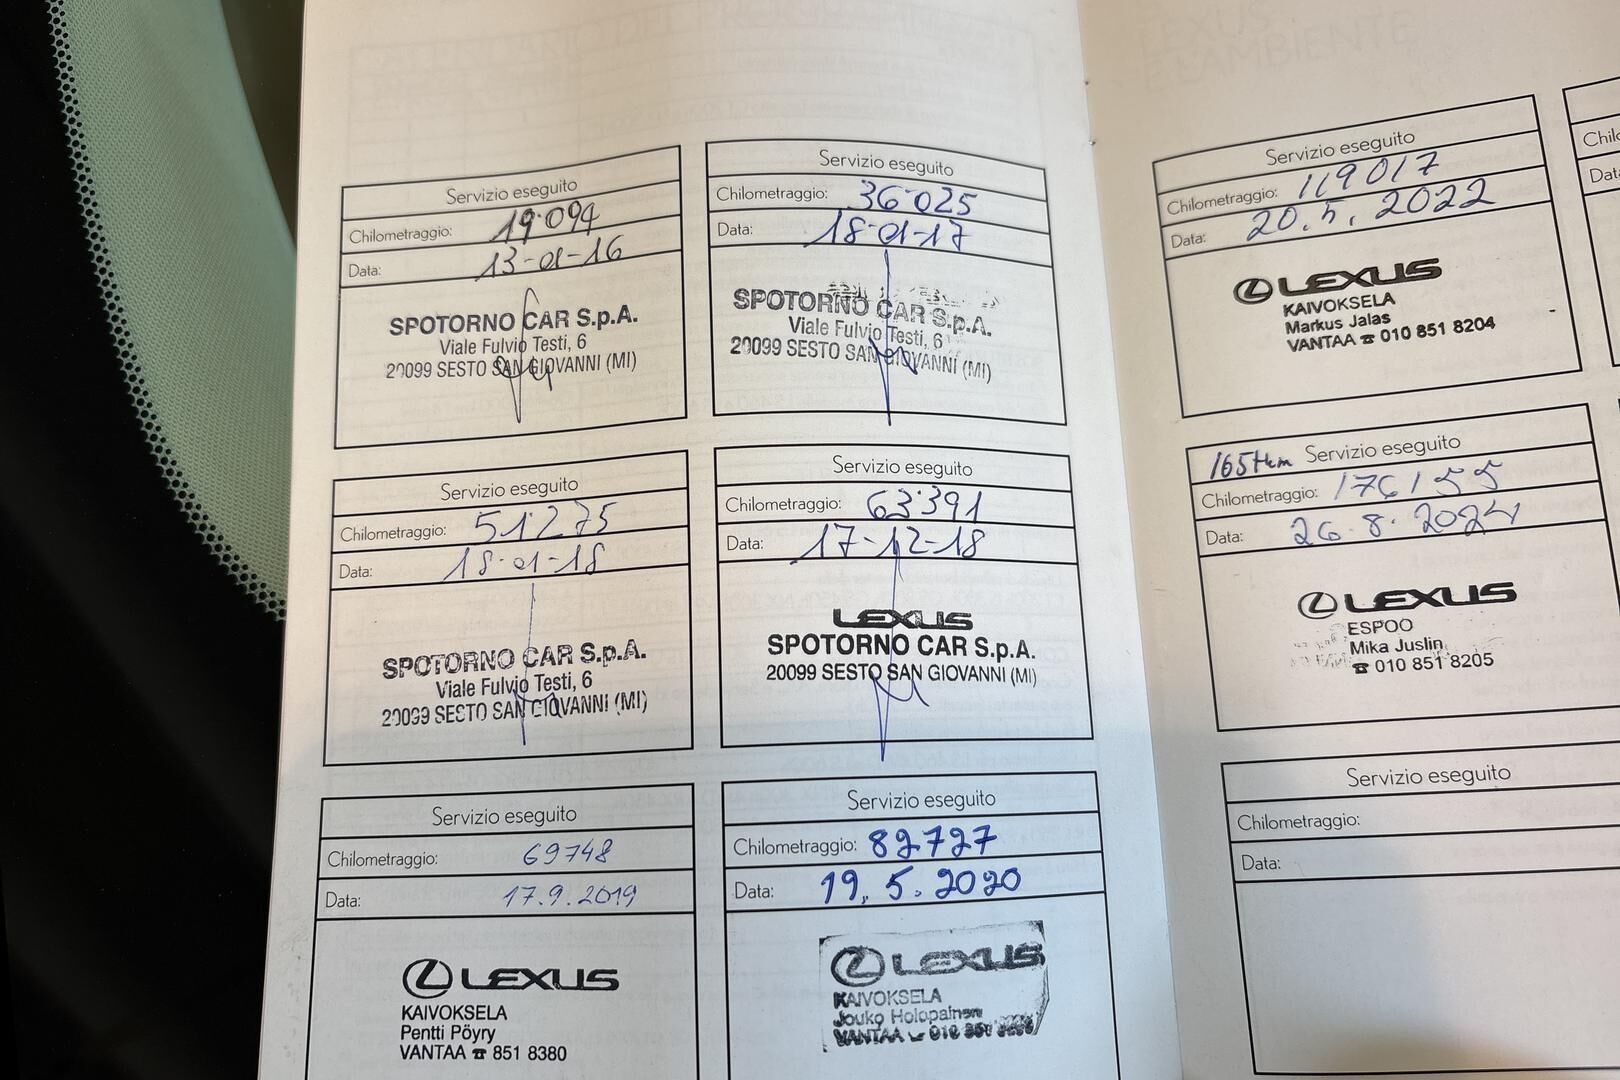 Servizio eseguito
Chilometraggio: 19·094
Data: 13-01-16
SPOTORNO CAR S.p.A.
Viale Fulvio Testi, 6
20099 SESTO SAN GIOVANNI (MI)
Servizio eseguito
Chilometraggio: 36·025
Data: 18-01-17
SPOTORNO CAR S.p.A.
Viale Fulvio Testi, 6
20099 SESTO SAN GIOVANNI (MI)
Servizio eseguito
Chilometraggio: 51·275
Data: 18-01-18
SPOTORNO CAR S.p.A.
Viale Fulvio Testi, 6
20099 SESTO SAN GIOVANNI (MI)
Servizio eseguito
Chilometraggio: 63·391
Data: 17-12-18
LEXUS
SPOTORNO CAR S.p.A.
20099 SESTO SAN GIOVANNI (MI)
Servizio eseguito
Chilometraggio: 69748
Data: 17.9.2019
LEXUS
KAIVOKSELA
Pentti Pöyry
VANTAA ☎ 851 8380
Servizio eseguito
Chilometraggio: 82727
Data: 19.5.2020
LEXUS
KAIVOKSELA
Jouko Holopainen
VANTAA
LEXUS
E L'AMBIENTE
Servizio eseguito
Chilometraggio: 119017
Data: 20.5.2022
LEXUS
KAIVOKSELA
Markus Jalas
VANTAA ☎ 010 851 8204
165tkm Servizio eseguito
Chilometraggio: 176155
Data: 26.8.2024
LEXUS
ESPOO
Mika Juslin
☎ 010 851 8205
Servizio eseguito
Chilometraggio:
Data: